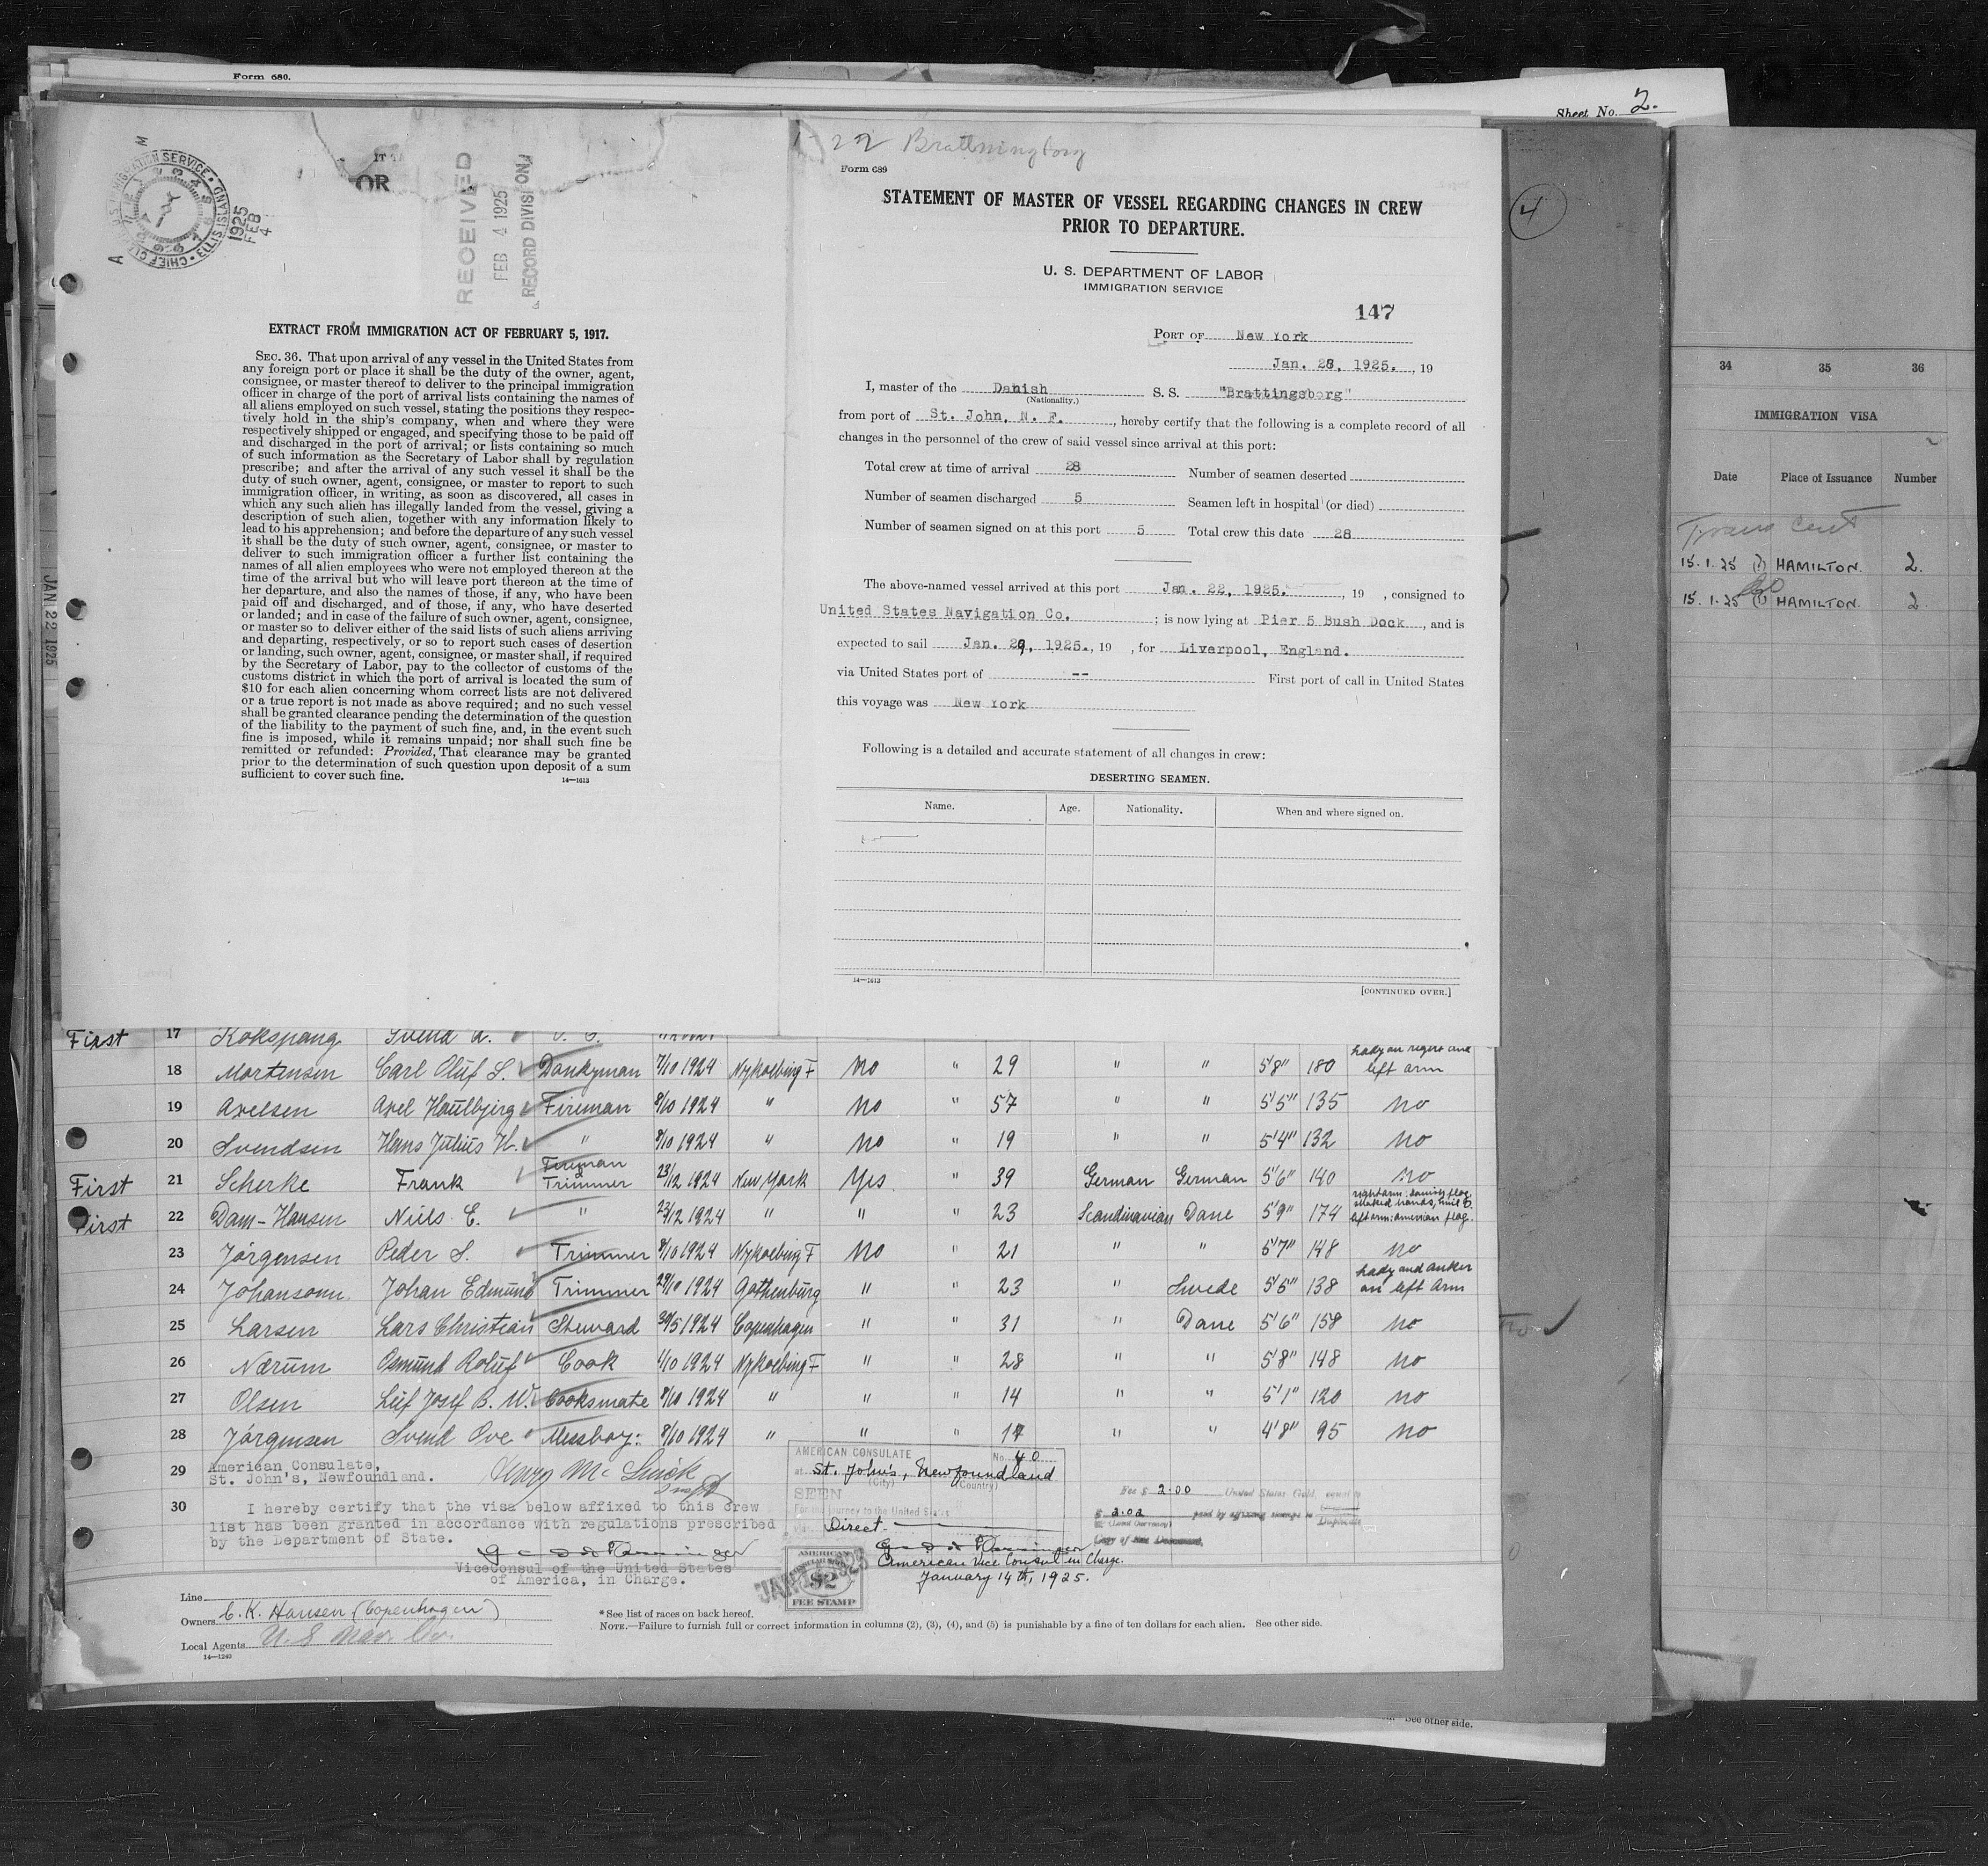 Form 680.
Sheet No. 2.
CHIEF CLERK U.S. IMMIGRATION SERVICE • ELLIS ISLAND
1925
FEB
4
OR
RECEIVED
FEB 4 1925
RECORD DIVISION
EXTRACT FROM IMMIGRATION ACT OF FEBRUARY 5, 1917.
SEC. 36. That upon arrival of any vessel in the United States from
any foreign port or place it shall be the duty of the owner, agent,
consignee, or master thereof to deliver to the principal immigration
officer in charge of the port of arrival lists containing the names of
all aliens employed on such vessel, stating the positions they respec-
tively hold in the ship's company, when and where they were
respectively shipped or engaged, and specifying those to be paid off
and discharged in the port of arrival; or lists containing so much
of such information as the Secretary of Labor shall by regulation
prescribe; and after the arrival of any such vessel it shall be the
duty of such owner, agent, consignee, or master to report to such
immigration officer, in writing, as soon as discovered, all cases in
which any such alien has illegally landed from the vessel, giving a
description of such alien, together with any information likely to
lead to his apprehension; and before the departure of any such vessel
it shall be the duty of such owner, agent, consignee, or master to
deliver to such immigration officer a further list containing the
names of all alien employees who were not employed thereon at the
time of the arrival but who will leave port thereon at the time of
her departure, and also the names of those, if any, who have been
paid off and discharged, and of those, if any, who have deserted
or landed; and in case of the failure of such owner, agent, consignee,
or master so to deliver either of the said lists of such aliens arriving
and departing, respectively, or so to report such cases of desertion
or landing, such owner, agent, consignee, or master shall, if required
by the Secretary of Labor, pay to the collector of customs of the
customs district in which the port of arrival is located the sum of
$10 for each alien concerning whom correct lists are not delivered
or a true report is not made as above required; and no such vessel
shall be granted clearance pending the determination of the question
of the liability to the payment of such fine, and, in the event such
fine is imposed, while it remains unpaid; nor shall such fine be
remitted or refunded: Provided, That clearance may be granted
prior to the determination of such question upon deposit of a sum
sufficient to cover such fine.
14—1613
JAN 22 1925
1-22 Brattningborg
Form 689
STATEMENT OF MASTER OF VESSEL REGARDING CHANGES IN CREW
PRIOR TO DEPARTURE.
U. S. DEPARTMENT OF LABOR
IMMIGRATION SERVICE
147
PORT OF New York
Jan. 28, 1925. , 19
I, master of the Danish S. S. "Brattingsborg"
(Nationality.)
from port of St. John, N. F. , hereby certify that the following is a complete record of all
changes in the personnel of the crew of said vessel since arrival at this port:
Total crew at time of arrival 28 Number of seamen deserted
Number of seamen discharged 5 Seamen left in hospital (or died)
Number of seamen signed on at this port 5 Total crew this date 28
The above-named vessel arrived at this port Jan. 22, 1925. , 19 , consigned to
United States Navigation Co. ; is now lying at Pier 5 Bush Dock , and is
expected to sail Jan. 29, 1925. , 19 , for Liverpool, England.
via United States port of -- First port of call in United States
this voyage was New York
Following is a detailed and accurate statement of all changes in crew:
DESERTING SEAMEN.
Name. Age. Nationality. When and where signed on.
14—1613
[CONTINUED OVER.]
4
34 35 36
IMMIGRATION VISA
Date Place of Issuance Number
Trans cert
15.1.25 HAMILTON. 2.
15.1.25 HAMILTON. 2
First 17 Kokspang Svend A.
18 Mortensen Carl Oluf S. Donkyman 7/10 1924 Nykoebing F No " 29 " " 5'8" 180 lady on right and left arm
19 Axelsen Axel Haulbjerg Fireman 8/10 1924 " No " 57 " " 5'5" 135 no
20 Svendsen Hans Julius H. " 8/10 1924 " No " 19 " " 5'4" 132 no
First 21 Scherke Frank Fireman Trimmer 23/12 1924 New York Yes " 39 German German 5'6" 140 no
First 22 Dam-Hansen Niels E. " 23/12 1924 " " " 23 Scandinavian Dane 5'9" 174 right arm: danish flag, shaked hands, left arm: amerian flag.
23 Jørgensen Peder S. Trimmer 8/10 1924 Nykoebing F No " 21 " " 5'7" 148 no
24 Johansonn Johan Edmund Trimmer 29/10 1924 Gothenburg " " 23 " Swede 5'5" 138 lady and anker on left arm
25 Larsen Lars Christian Steward 30/5 1924 Copenhagen " " 31 " Dane 5'6" 158 no
26 Nærum Osmund Roluf Cook 1/10 1924 Nykoebing F " " 28 " " 5'8" 148 no
27 Olsen Leif Josef B. W. Cooksmate 8/10 1924 " " " 14 " " 5'1" 120 no
28 Jørgensen Svend Ove Messboy: 8/10 1924 " " " 17 " " 4'8" 95 no
29 American Consulate,
St. John's, Newfoundland.
30 I hereby certify that the visa below affixed to this crew
list has been granted in accordance with regulations prescribed
by the Department of State.
Vice Consul of the United States
of America, in Charge.
AMERICAN CONSULATE No. 40
at St. John's, Newfoundland
(City) (Country)
SEEN
For the journey to the United States
Direct.
American Vice Consul in Charge.
January 14th, 1925.
AMERICAN
$2
FEE STAMP
Fee $ 2.00 United States Gold,
$ 2.02
(Local Currency)
Line
Owners C. K. Hansen (Copenhagen)
Local Agents U. S Nav. Co.
14—1240
*See list of races on back hereof.
NOTE.—Failure to furnish full or correct information in columns (2), (3), (4), and (5) is punishable by a fine of ten dollars for each alien. See other side.
See other side.